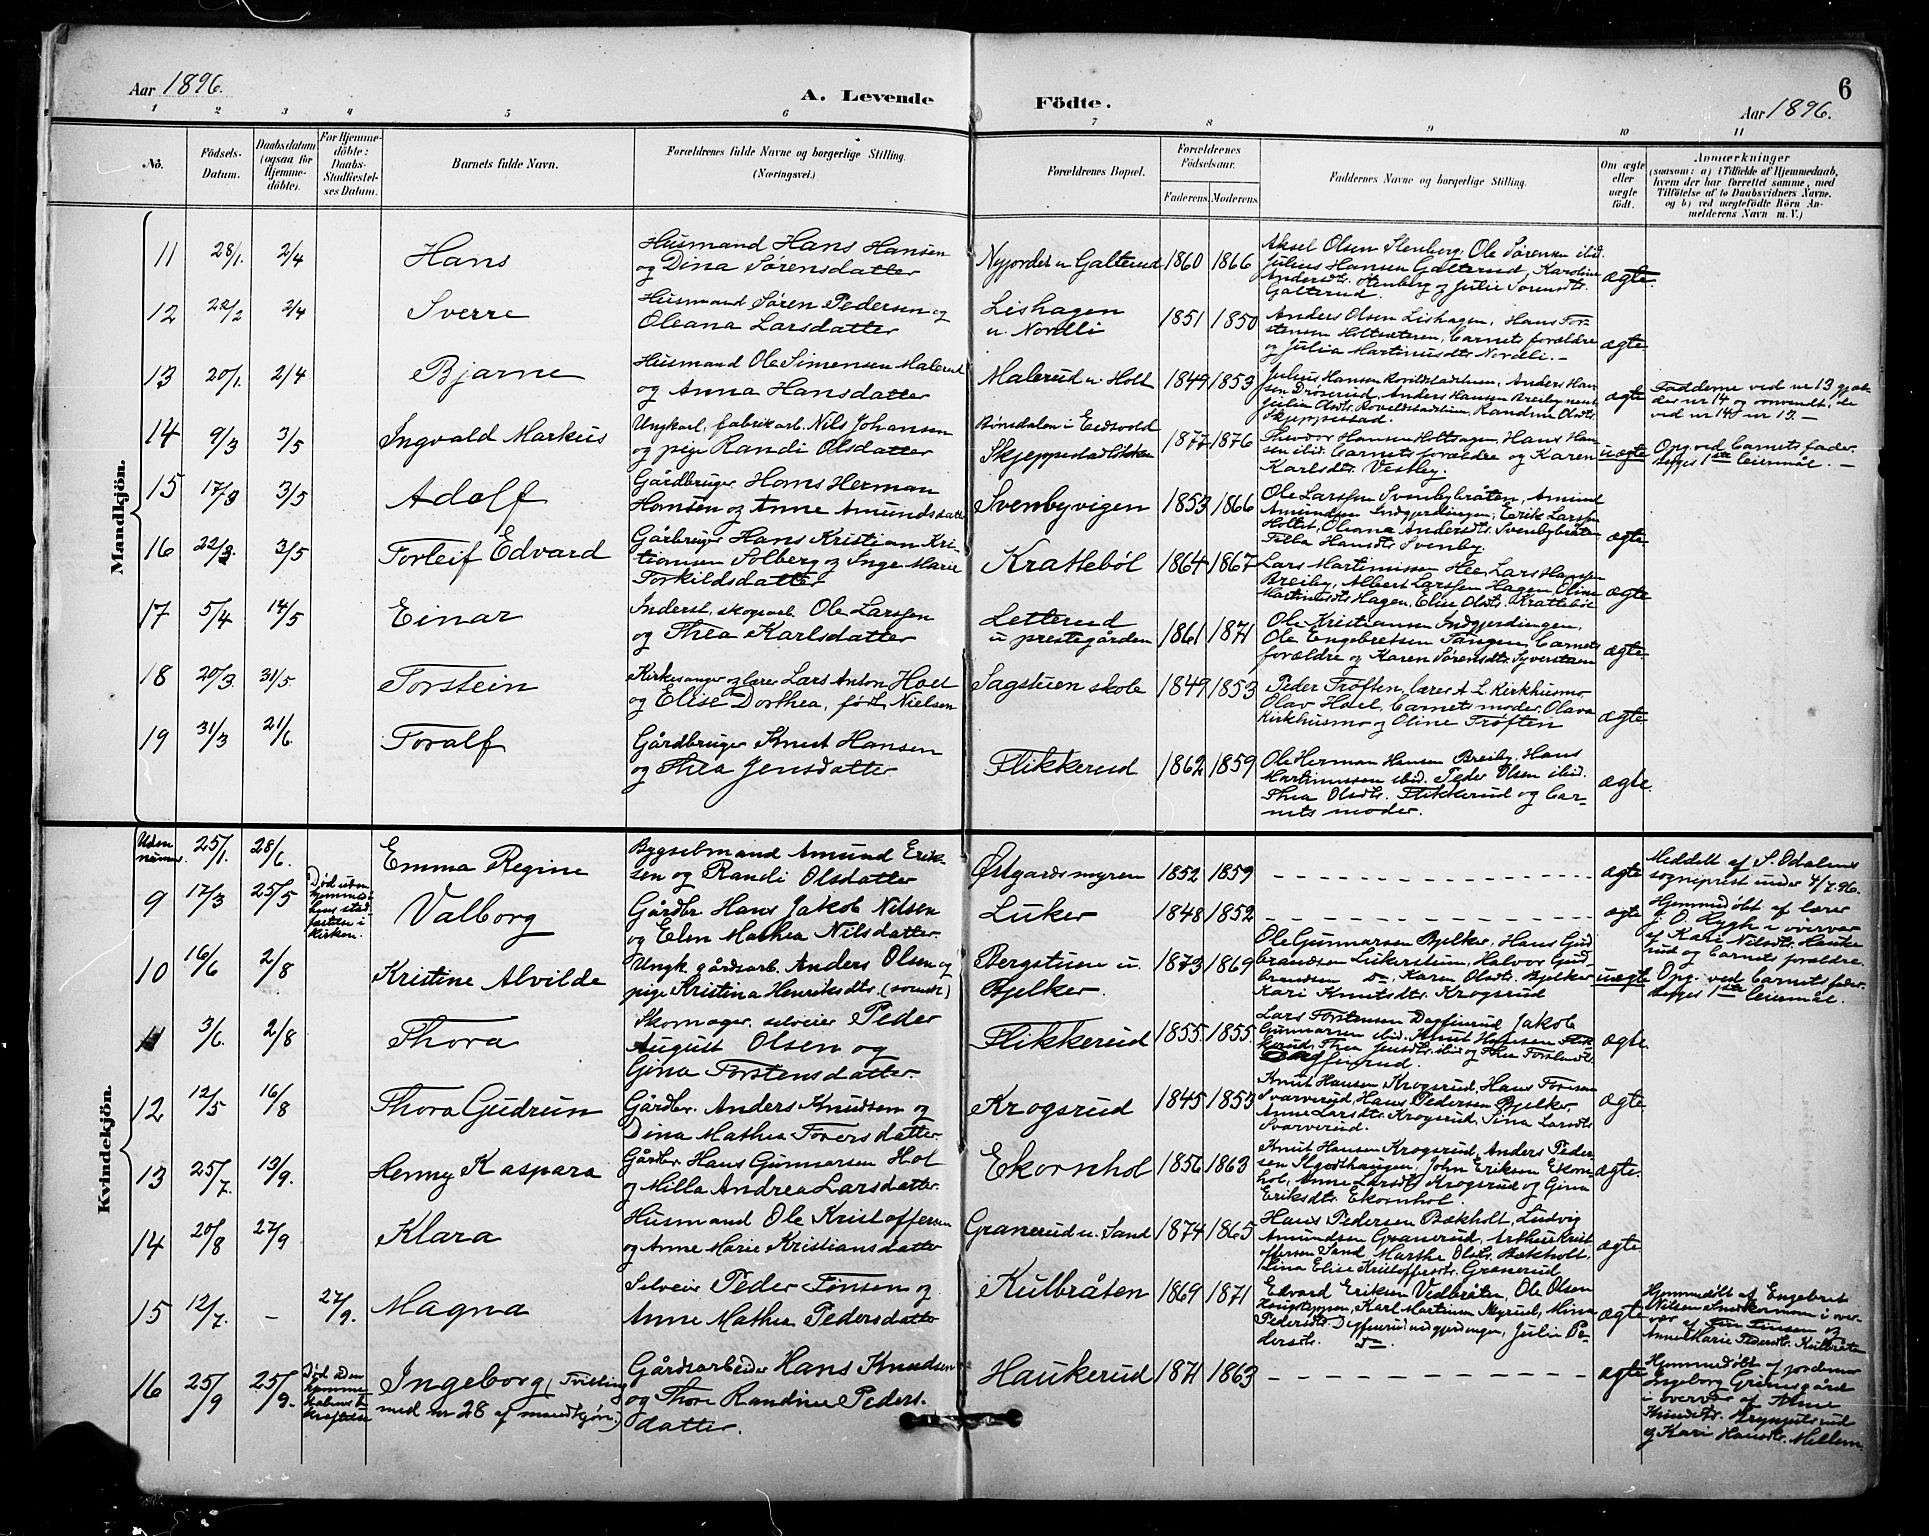 Aar 1896.
A. Levende Födte.
6
Aar 1896.
1 2 3 4 5 6 7 8 9 10 11
No.
Födsels-Datum.
Daabsdatum (ogsaa for Hjemmedöbte).
For Hjemmedöbte: Daabs-Stadfæstelses Datum.
Barnets fulde Navn.
Forældrenes fulde Navne og borgerlige Stilling. (Næringsvei.)
Forældrenes Bopæl.
Forældrenes Födselsaar.
Faderens. Moderens.
Faddernes Navne og borgerlige Stilling.
Om ægte eller uægte födt.
Anmærkninger
(saasom: a) i Tilfælde af Hjemmedaab,
hvem der har forrettet samme, med
Tilföielse af to Daabsvidners Navne.
og b) ved uægtefödte Börn An-
melderens Navn m. V.)
Mandkjön.
11 28/1. 2/4 Hans
Husmand Hans Hansen
og Dina Sørensdatter
Nyjordet u Galterud 1860 1866
Aksel Olsen Stenberg, Ole Sørensen ibid.
Julius Hansen Galterud, Karoline
Andersdt. Stenberg og Julie Sørensdt.
Galterud.
ægte.
12 22/2 2/4 Sverre
Husmand Søren Pedersen og
Oleana Larsdatter
Lishagen
u. Nordli
1851 1850
Anders Olsen Lishagen, Hans Tor-
stensen Holtsæteren, barnets forældre
og Julia Martinusdt. Nordli. -
ægte
13 20/1. 2/4 Bjarne
Husmand Ole Simensen Malerud
og Anna Hansdatter
Malerud u Holt 1849 1853
Julius Hansen Roveldstadstuen, Anders Han-
sen Drøserud, Anders Hansen Breiby
Julia Olsdt. Roveldstadstuen, Randine Olsdt.
Skjeppestad.
ægte
Fadderne ved nr 13 gjæl-
der nr 14 og omvendt, de
ved nr 14 nr 13 -
14 9/3 3/5 Ingvald Markus
Ungkarl, fabrikarb. Nils Johansen
og pige Randi Olsdatter
Bönsdalen i Eidsvold
Skjeppestadbakken
1877 1876
Theodor Hansen Holtsagen, Hans Han-
sen ibid. barnets forældre og Karen
Karlsdt. Vestby.
uægte
Opg. ved barnets fader.
begges 1ste leiermål. -
15 17/3 3/5 Adolf
Gårdbruger Hans Herman
Hansen og Anne Amundsdatter
Svenbyvigen 1853 1866
Ole Larssen Svenbybråten, Amund
Amundsen Indgjerdingen, Erik Larssen
Holtet, Oleana Andersdt. Svenbybråten
Hansdt. Svenby.
ægte
16 22/3. 3/5 Torleif Edvard
Gårbruger Hans Kristian Kri-
stiansen Solberg og Inge Marie
Torkildsdatter
Krattebøl 1864 1867
Lars Martinussen Hee, Lars Hansen
Breiby, Albert Larssen Hagen, Oline
Martinusdt. Hagen, Elise Olsdt. Krattebøl
ægte
17 5/4 14/5 Einar
Inderst, skogsarb. Ole Larssen
og Thea Karlsdatter
Letterud
u prestegården
1861 1871
Ole Kristiansen Indgjerdingen,
Ole Engebretsen Tangen, barnets
forældre og Karen Sørensdt. Syverstuen
ægte
18 20/3. 31/5 Torstein
Kirkesanger og lærer Lars Anton Hoel
og Elise Dorthea, født Nielsen
Sagstuen skole 1849 1853
Peder Trøften, lærer A. L. Kirkhusmo,
Olav Hoel, barnets moder, Olava
Kirkhusmo og Oline Trøften
ægte
19 31/3 21/6. Toralf
Gårdbruger Knut Hansen
og Thea Jensdatter
Flikkerud 1862 1859
Ole Herman Hansen Breiby, Hans
Martinussen ibid. Peder Olsen ibid.
Thea Olsdt. Flikkerud og bar-
nets moder.
ægte.
Kvindekjön.
Uden nummer. 25/1. 28/6. Emma Regine
Bygselmand Amund Erik-
sen og Randi Olsdatter
Østgardsmyren 1852 1859
ægte
Meddelt af S. Odalens
sogneprest under 4/7 96.
9 17/3 25/5
Død uden
hjemmedå-
bens stad-
fæstelse i
kirken.
Valborg
Gårdbr. Hans Jakob Nilsen
og Elen Mathea Nilsdatter.
Luker 1848 1852
ægte
Hjemmedøbt af lærer
J. O. Rygh i overvær
af Kari Nilsdt. Hauke-
rud og barnets forældre.
10 16/6 2/8 Kristine Alvilde
Ungk. gårdsarb. Anders Olsen og
pige Kristina Henriksdt. (svensk)
Bergstuen u.
Bjelker.
1873 1869
Ole Gunnarsen Bjelker, Hans Gud-
brandsen Lukerstuen, Halvor Gud-
brandsen do. Karen Olsdt. Bjelker
Kari Knutsdt. Krogsrud
uægte
Opg. ved barnets fader.
begges 1ste leiermål.
11 3/6. 2/8 Thora
Skomager, selveier Peder
August Olsen og
Gina Torstensdatter.
Flikkerud 1855. 1855.
Lars Torstensen Dagfinrud, Jakob
Gunnarsen ibid. Knut Hansen Flik-
kerud, Thea Jensdt. ibid og Thea Torstensdt.
Dagfinrud.
ægte.
12 12/5 16/8 Thora Gudrun
Gårdbr. Anders Knudsen og
Dina Mathea Torersdatter
Krogsrud 1845 1853
Knut Hansen Krogsrud, Hans Toresen
Svarverud, Hans Pedersen Bjelker,
Anne Larsdt. Krogsrud, Lina Larsdt.
Svarverud.
ægte
13 25/7. 13/9. Henny Kaspara
Gårdbr. Hans Gunnarsen Hol
og Milla Andrea Larsdatter.
Ekornhol 1856 1863
Knut Hansen Krogsrud, Anders Peder-
sen John Eriksen Ekorn-
hol, Anne Larsdt. Krogsrud og Gina
Eriksdt. Ekornhol.
ægte.
14 20/8 27/9 Klara
Husmand Ole Kristoffersen
og Anne Marie Kristiansdatter
Granerud u. Sand 1874 1865
Hans Pedersen Bækholt, Ludvig
Amundsen Granerud, Arthur Krist-
offersen Sand, Marthe Olsdt. Bækholt.
Lina Elise Kristoffersdt. Granerud
ægte.
15 12/7. - 27/9. Magna
Selveier Peder Finsen og
Anne Mathea Pedersdatter
Kulbråten 1869 1871
Edvard Eriksen Vedbråten, Ole Olsen
Haugtoppen, Karl Martinsen Myrud, Mina
Pedersdt. Julie Pe-
dersdt. do
ægte
Hjemmedøbt af Engebret
Nilsen i over-
vær af Finsen og
Anne Marie Pedersdt. Kulbråten
16 25/9 25/9.
Død uden
Ingeborg (Tvilling
med nr 28 af mandkjøn.)
Gårdsarbeider Hans Knudsen
og Thore Randine Peders-
datter.
Haukerud 1871 1863
ægte
Hjemmedøbt af jordemor
Ingeborg Grimsgård
i overvær af Anne
Knudsdt.
og Kari Hansdt. Mellem